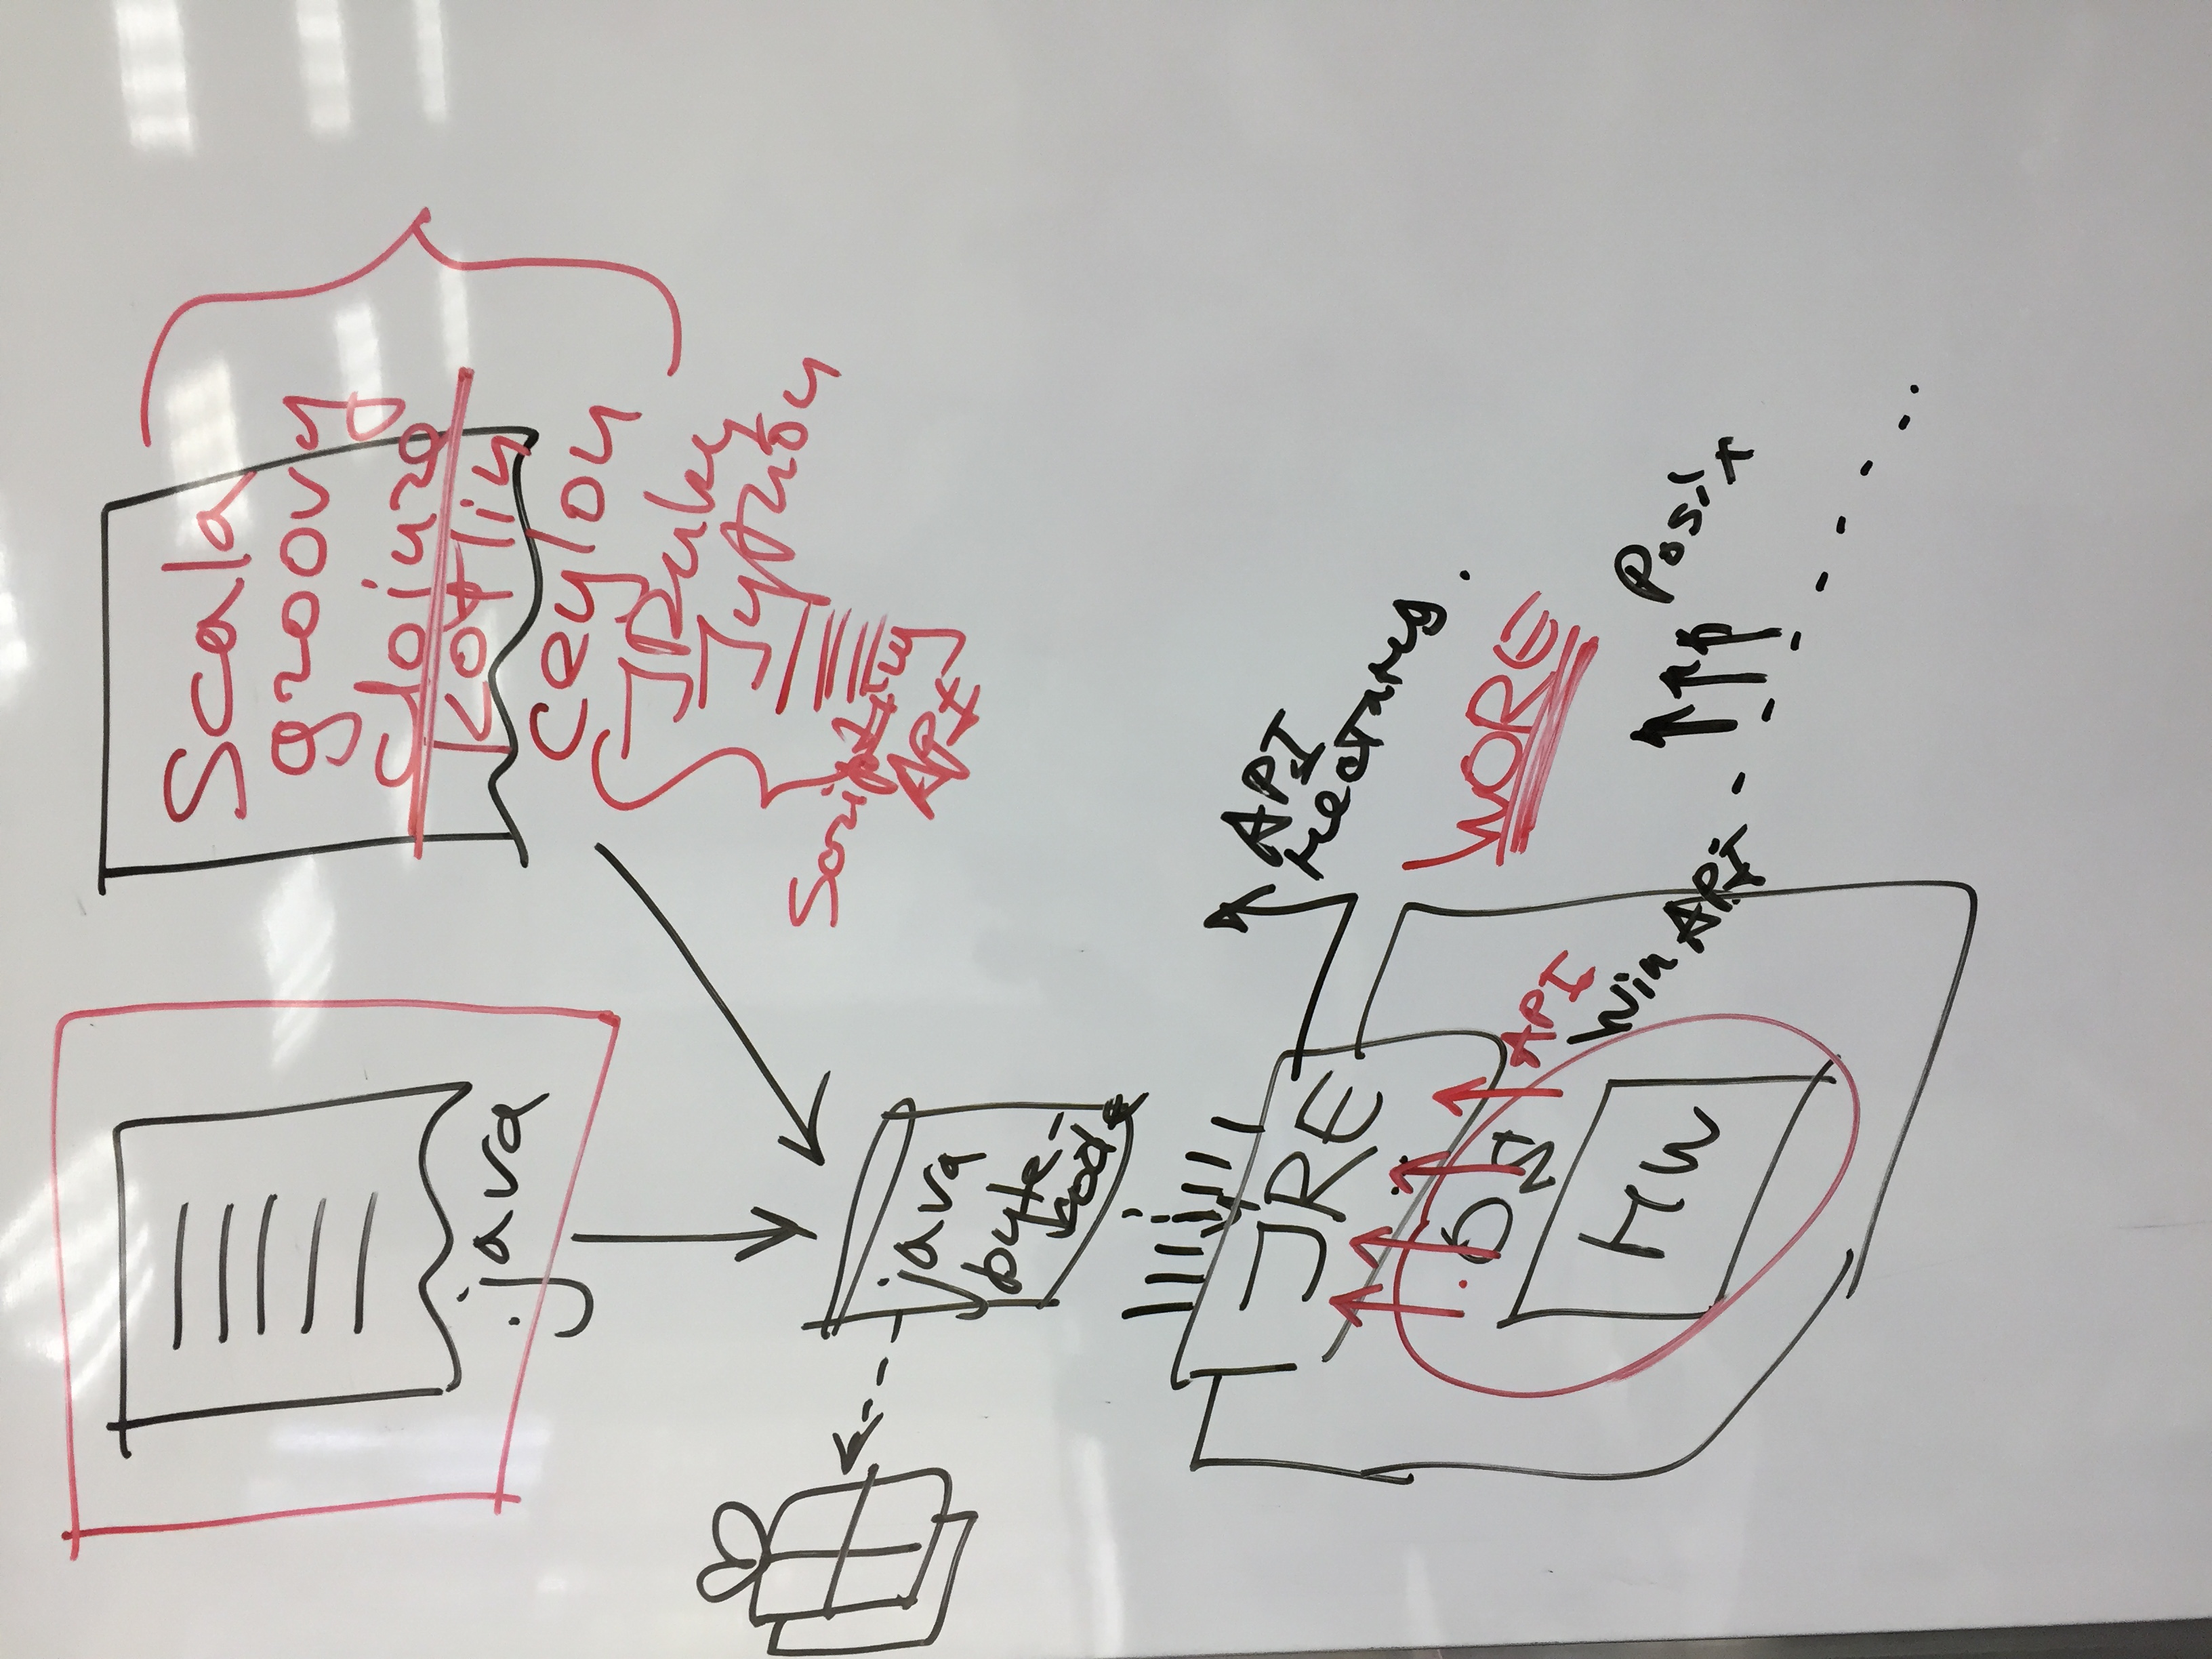 .java
Scala
groovy
clojure
kotlin
ceylon
JRuby
Jython
Scripting
API
java
byte-
code
JRE
API
WORE
OS
API
HW
Win API
Posix